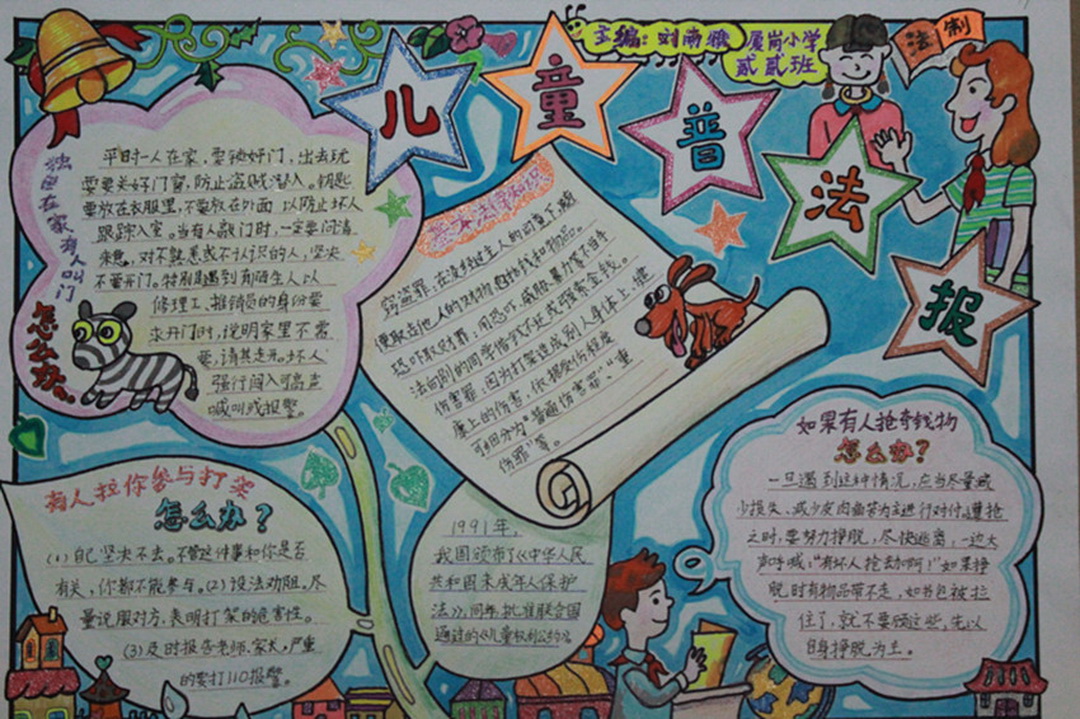 主编：刘雨雅
厦岗小学
贰贰班
法制
儿童普法报
独自在家有人叫门
怎么办
平时一人在家，要锁好门，出去玩
需要关好门窗，防止盗贼潜入。钥匙
要放在衣服里，不要放在外面 以防止坏人
跟踪入室。当有人敲门时，一定要问清
来意，对不熟悉或不认识的人，坚决
不要开门。特别是遇到有陌生人以
修理工、推销员的身份要
求开门时，说明家里不需
要，请其走开。坏人
强行闯入可高声
喊叫或报警。
法学知识
窃盗罪：在没经过主人的同意下，擅
便取走他人的财物，包括钱和物品。
恐吓取财罪：用恐吓、威胁、暴力等不当手
法向别的同学借钱不还或强索金钱。
伤害罪：因为打架造成别人身体上、健
康上的伤害，依据受伤程度
可细分为“普通伤害罪”、“重
伤罪”等。
有人拉你参与打架
怎么办？
(1)自己坚决不去。不管这件事和你是否
有关，你都不能参与。(2)设法劝阻。尽
量说服对方，表明打架的危害性。
(3)及时报告老师、家长，严重
的要打110报警。
1991年，
我国颁布了《中华人民
共和国未成年人保护
法》。同年，批准联合国
通过的《儿童权利公约》
如果有人抢夺钱物
怎么办？
一旦遇到这种情况，应当尽量减
少损失、减少皮肉痛苦为主进行对付。遭抢
之时，要努力挣脱，尽快逃离，一边大
声呼喊：“有坏人抢劫啊！”如果挣
脱时有物品带不走，如书包被拉
住了，就不要顾这些，先以
自身挣脱为主。